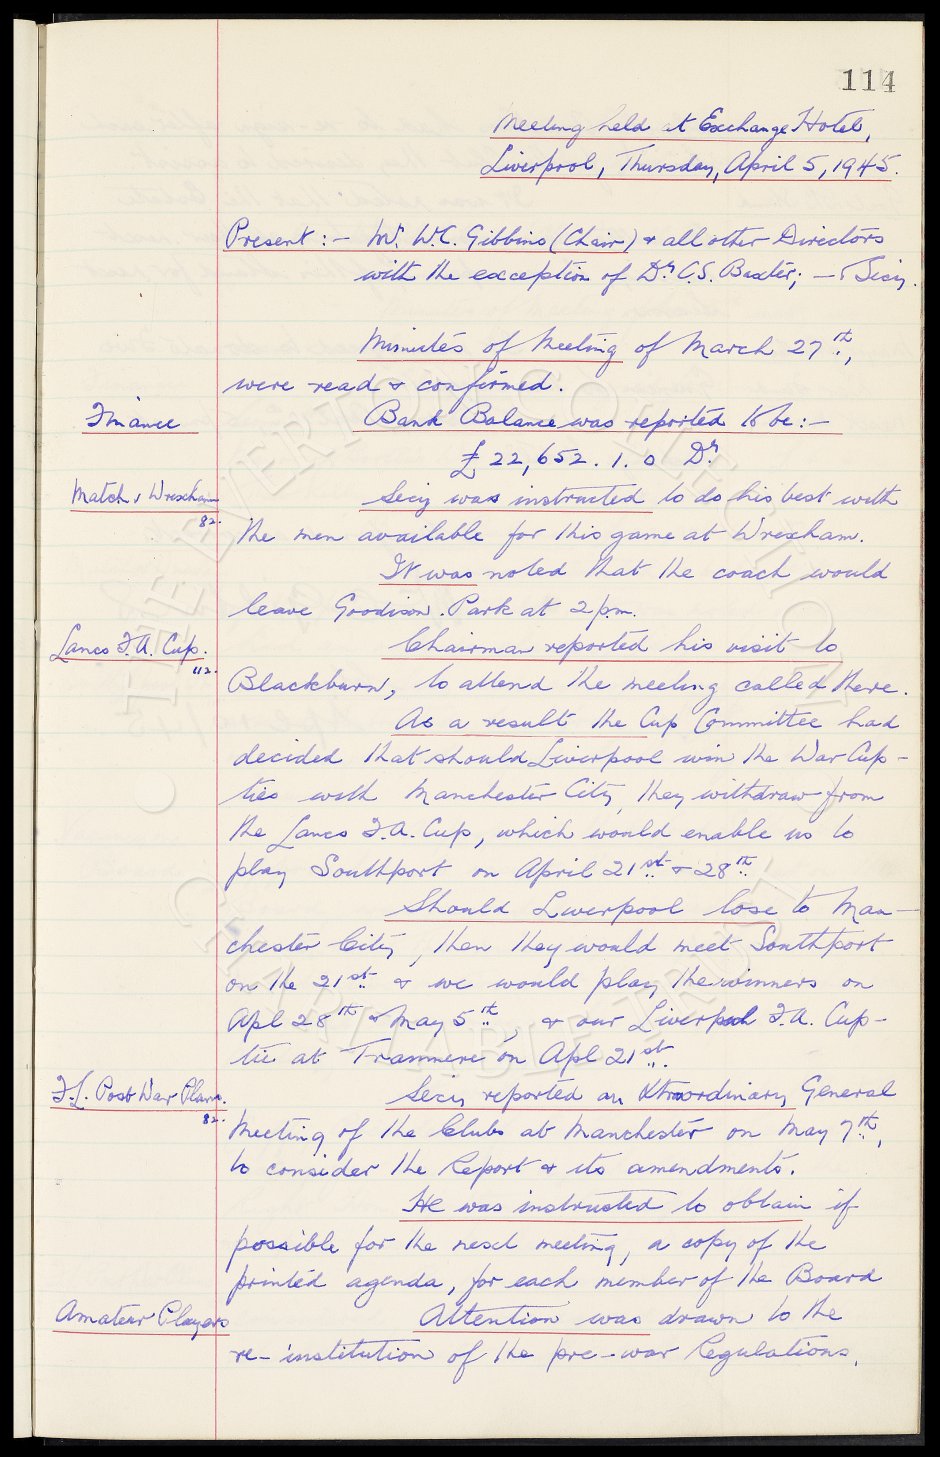 114
Meeting held at Exchange Hotel,
Liverpool, Thursday, April 5, 1945.
Present :- Mr. W.C. Gibbins (Chair) & all other Directors
with the exception of Dr. C.S. Baxter; - & Secy.
Minutes of Meeting of March 27th.,
were read & confirmed.
Finance
Bank Balance was reported to be :-
£22,652. 1. 0 Dr.
Match, Wrexham
82.
Secy was instructed to do his best with
the men available for this game at Wrexham.
It was noted that the coach would
leave Goodison Park at 2 p.m.
Lancs F.A. Cup.
112.
Chairman reported his visit to
Blackburn, to attend the meeting called there.
As a result the Cup Committee had
decided that should Liverpool win the War Cup-
ties with Manchester City, they withdraw from
the Lancs F.A. Cup, which would enable us to
play Southport on April 21st. & 28th.
Should Liverpool lose to Man-
chester City, then they would meet Southport
on the 21st. & we would play the winners on
Apl 28th & May 5th., & our Liverpool F.A. Cup-
tie at Tranmere on Apl 21st.
F.L. Post War Plan.
82.
Secy reported an Xtraordinary General
Meeting of the Clubs at Manchester on May 7th.,
to consider the Report & its amendments.
He was instructed to obtain if
possible for the next meeting, a copy of the
printed agenda, for each member of the Board
Amateur Players
Attention was drawn to the
re-institution of the pre-war Regulations.
THE EVERTON COLLECTION
CHARITABLE TRUST